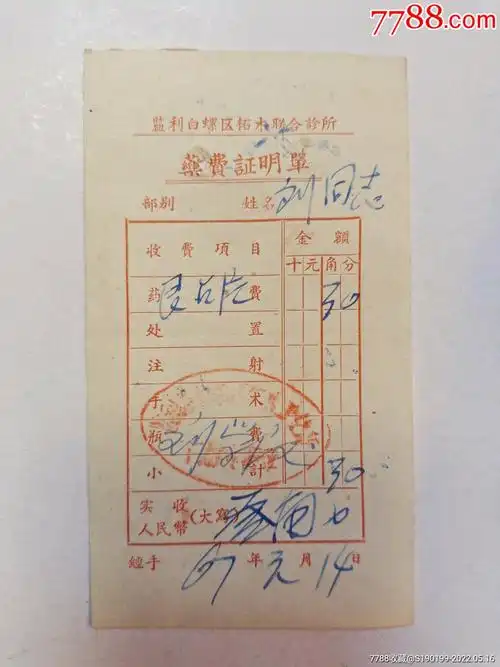 7788.com
监利白螺区柘木联合診所
藥費証明單
部别 姓名 刘同志
收費項目 金額
十元角分
药費 30
处置
注射
手术
瓶費
小計 30
实收
人民幣 (大寫) 叁角0
經手 67年元月14日
7788收藏@S190199-2022.05.16